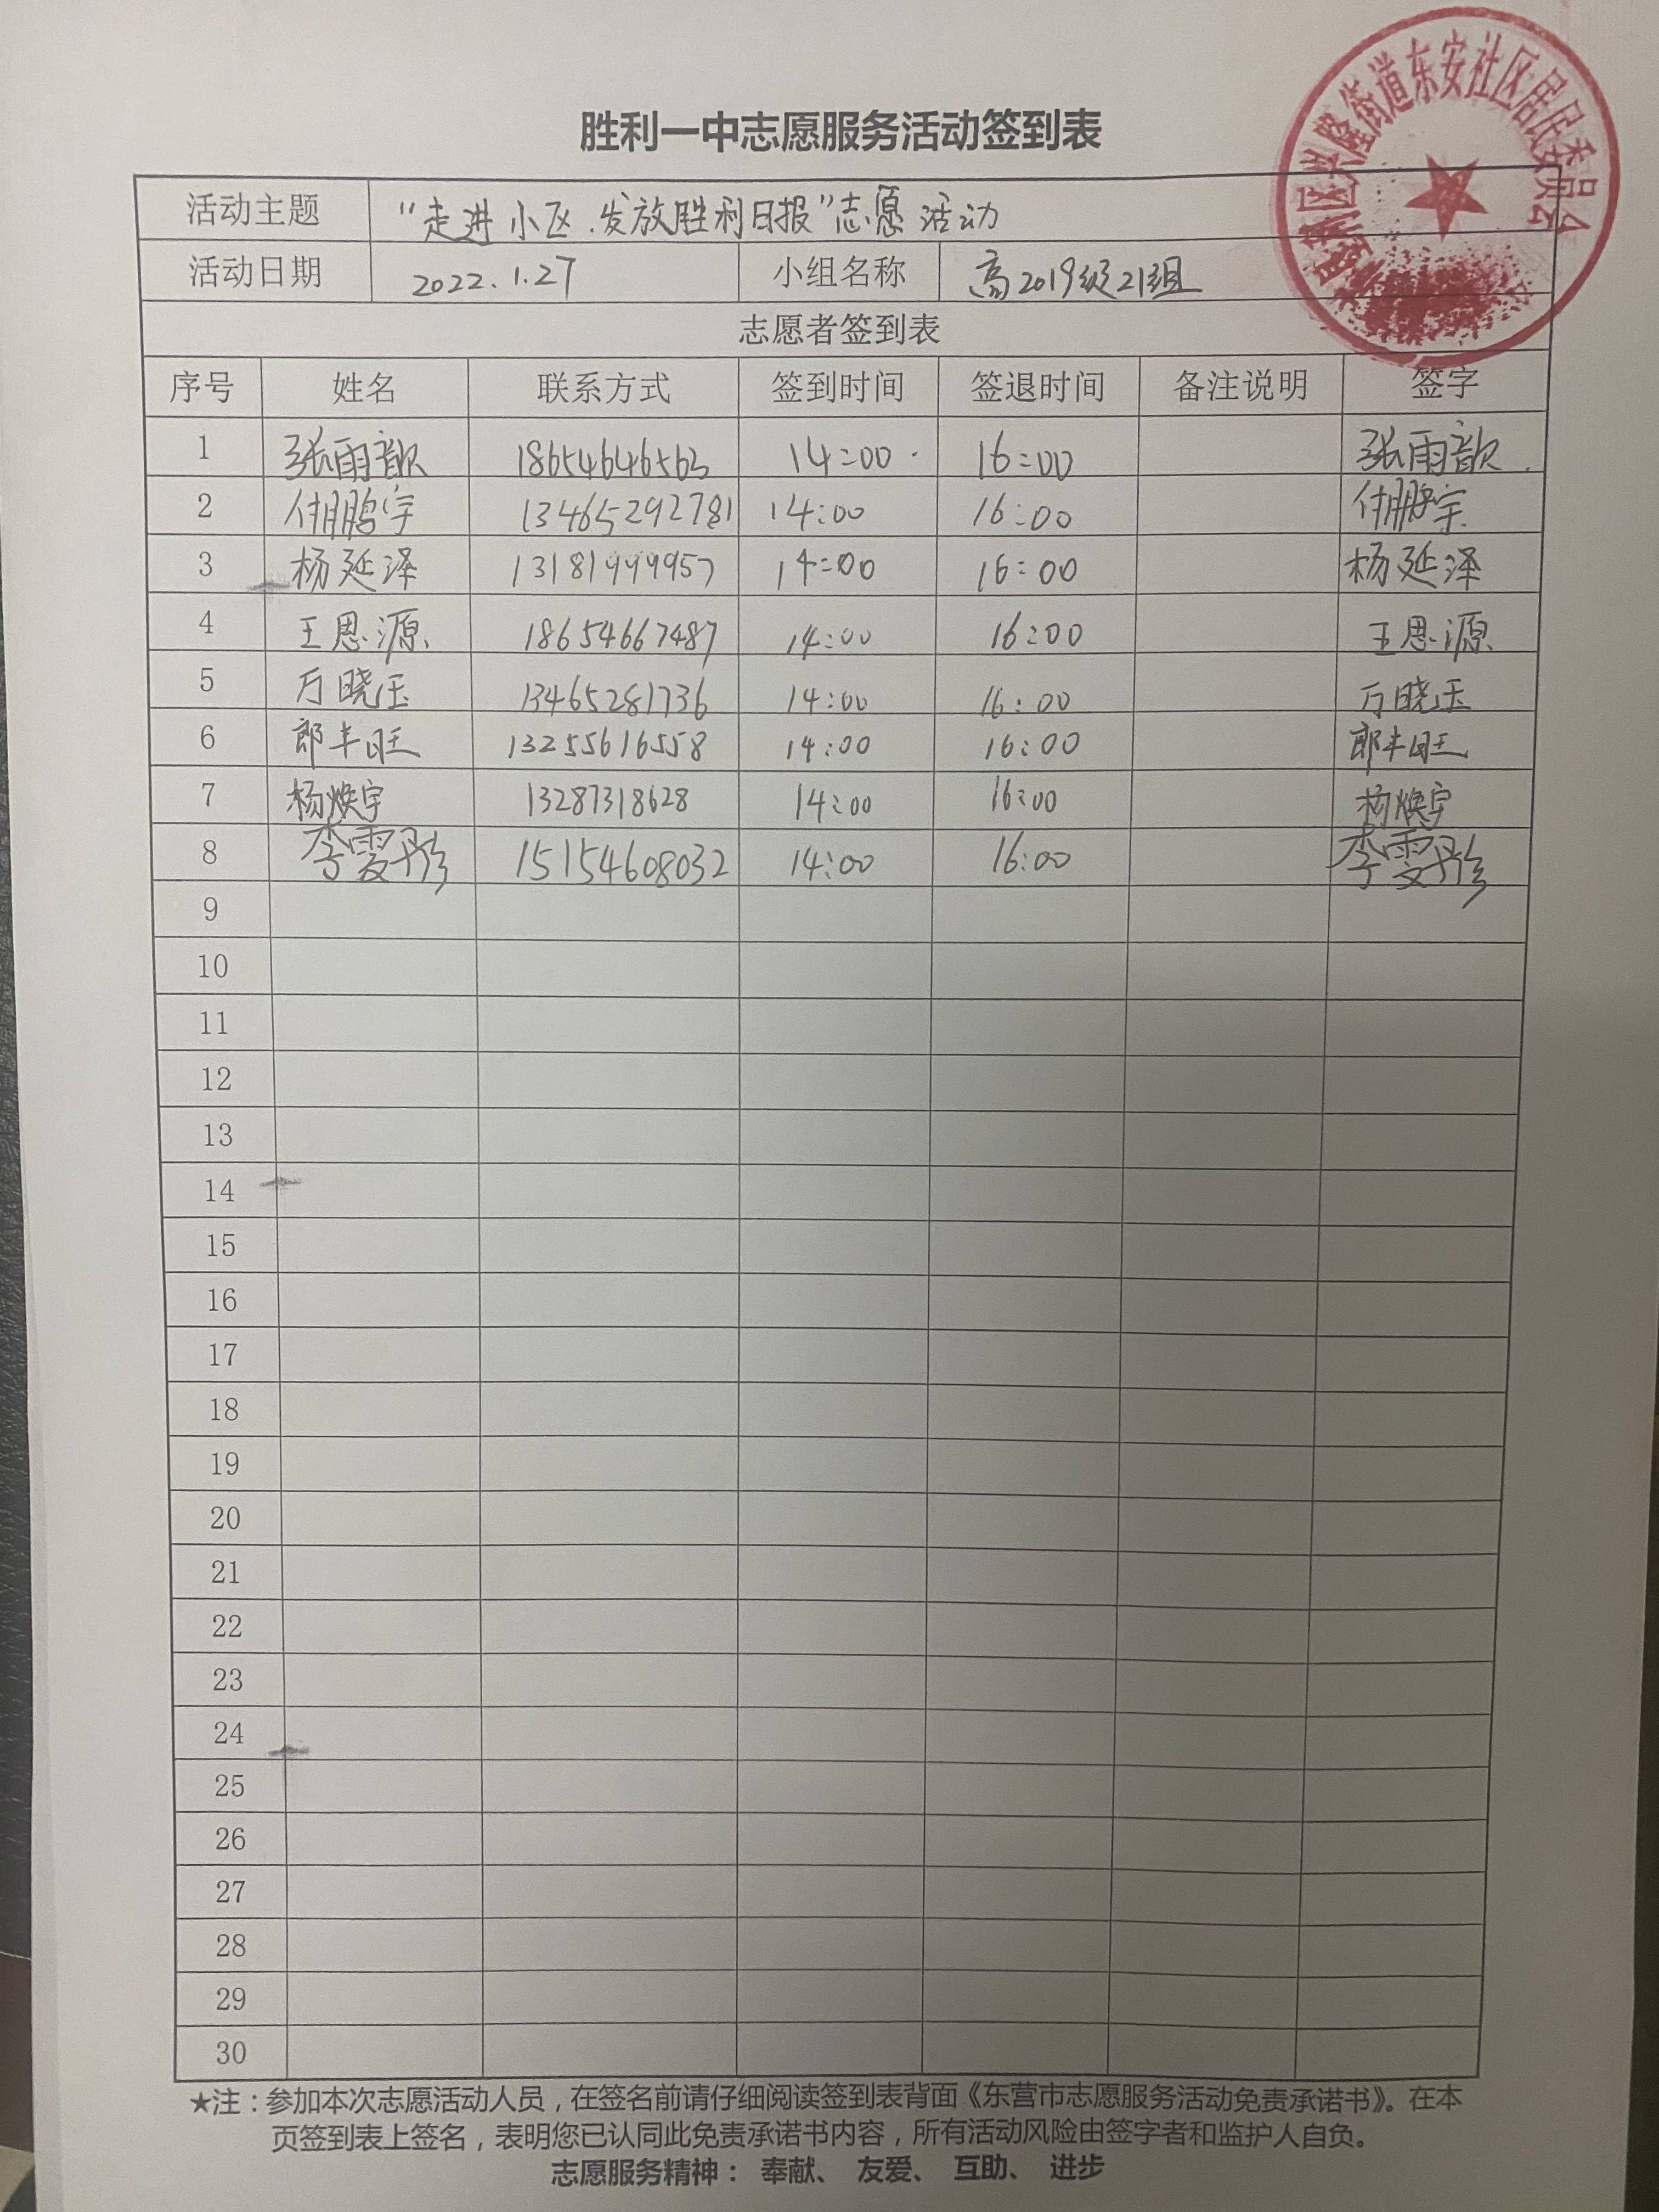 兴隆街道东安社区居民委员会
胜利一中志愿服务活动签到表
活动主题 “走进小区.发放胜利日报”志愿活动
活动日期 2022.1.27 小组名称 高2019级21组
志愿者签到表
序号 姓名 联系方式 签到时间 签退时间 备注说明 签字
1 张雨歆 18654646563 14:00 16:00 张雨歆
2 付鹏宇 13465292781 14:00 16:00 付鹏宇
3 杨延泽 13181999957 14:00 16:00 杨延泽
4 王思源 18654667487 14:00 16:00 王思源
5 万晓玉 13465281736 14:00 16:00 万晓玉
6 郎丰旺 13255616558 14:00 16:00 郎丰旺
7 杨焕宇 13287318628 14:00 16:00 杨焕宇
8 李雯彤 15154608032 14:00 16:00 李雯彤
9
10
11
12
13
14
15
16
17
18
19
20
21
22
23
24
25
26
27
28
29
30
★注：参加本次志愿活动人员，在签名前请仔细阅读签到表背面《东营市志愿服务活动免责承诺书》。在本
页签到表上签名，表明您已认同此免责承诺书内容，所有活动风险由签字者和监护人自负。
志愿服务精神： 奉献、 友爱、 互助、 进步